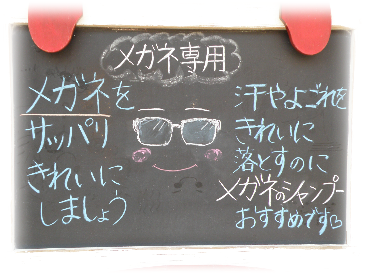 メガネ専用
メガネを
サッパリ
きれいに
しましょう
汗やよごれを
きれいに
落とすのに
メガネのシャンプー
おすすめです